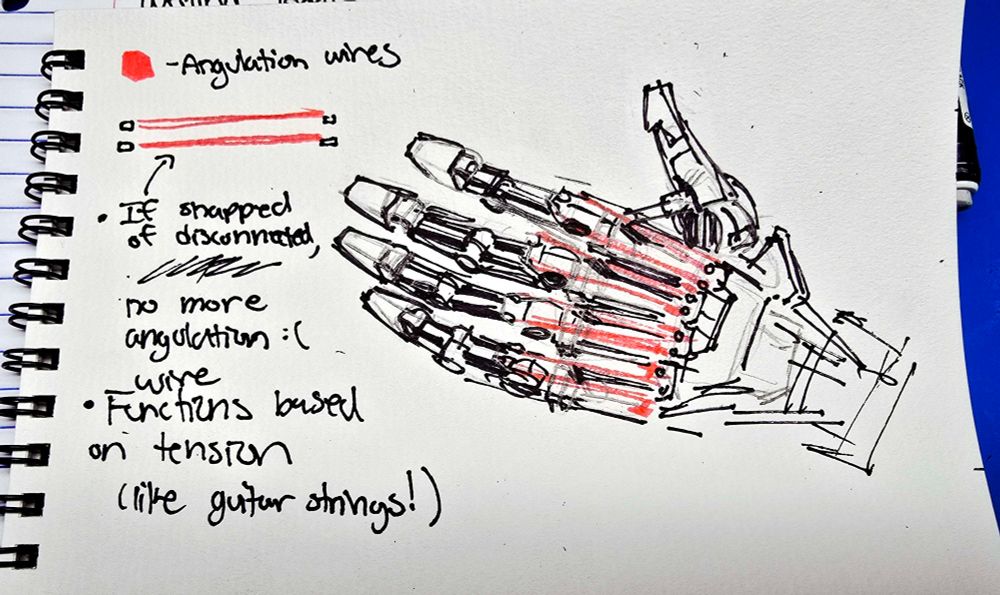 -Angulation wires
• If snapped
of disconnated,
no more
angulation :(
wire
• Functions based
on tension
(like guitar strings!)